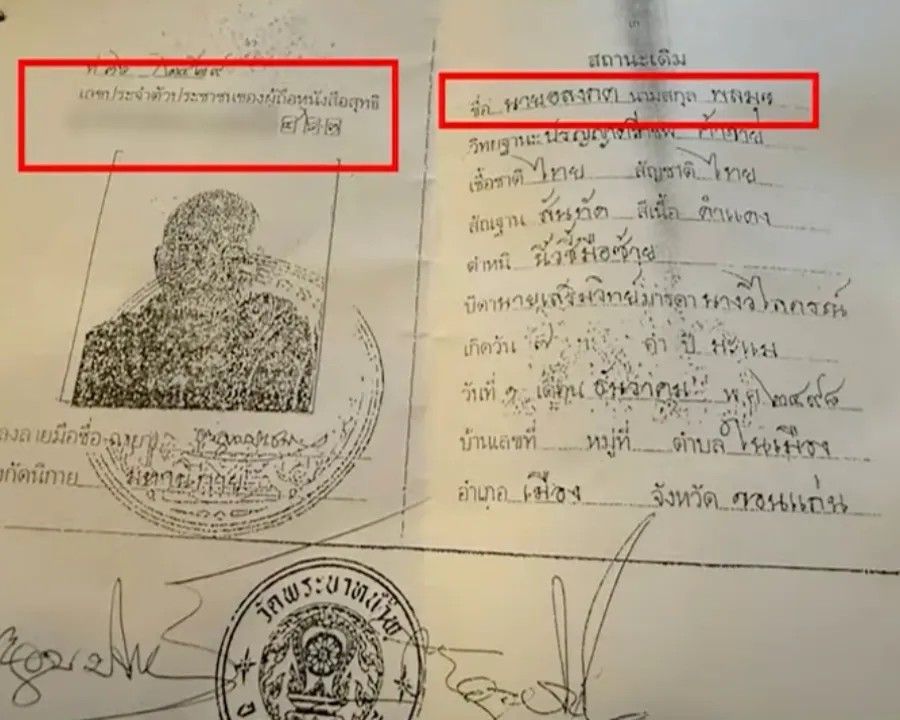 เลขประจำตัวประชาชนของผู้ถือหนังสือสุทธิ
๔ ๒ ๒
ลงลายมือชื่อ ฉายา
สังกัดนิกาย มหานิกาย
สถานะเดิม
ชื่อ นายอลงกต นามสกุล พลมุข
วิทยฐานะ ปริญญาตรี อาชีพ ค้าขาย
เชื้อชาติ ไทย สัญชาติ ไทย
สัณฐาน สันทัด สีเนื้อ ดำแดง
ตำหนิ นิ้วชี้มือซ้าย
บิดา นายเสริมวิทย์ มารดา นางวิไลภรณ์
เกิดวัน ๗ ค่ำ ปี มะแม
วันที่ เดือน ธันวาคม พ.ศ. ๒๔๙๘
บ้านเลขที่ หมู่ที่ ตำบล ในเมือง
อำเภอ เมือง จังหวัด ขอนแก่น
วัดพระบาทน้ำพุ